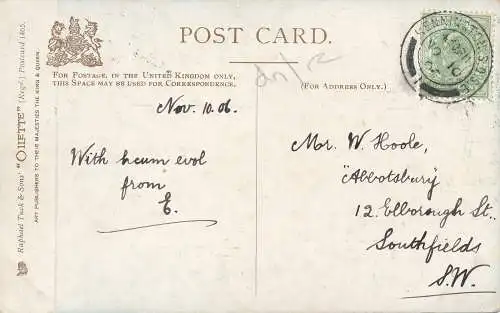 POST CARD.
FOR POSTAGE, IN THE UNITED KINGDOM ONLY,
THIS SPACE MAY BE USED FOR CORRESPONDENCE.
(FOR ADDRESS ONLY.)
Nov. 10.06.
With heum evol
from
E.
Mr. W. Hoole,
"Abbotsbury"
12. Elborough St.
Southfields
S.W.
Raphael Tuck & Sons' "OILETTE" [Regd.] Postcard
ART PUBLISHERS TO THEIR MAJESTIES THE KING & QUEEN.